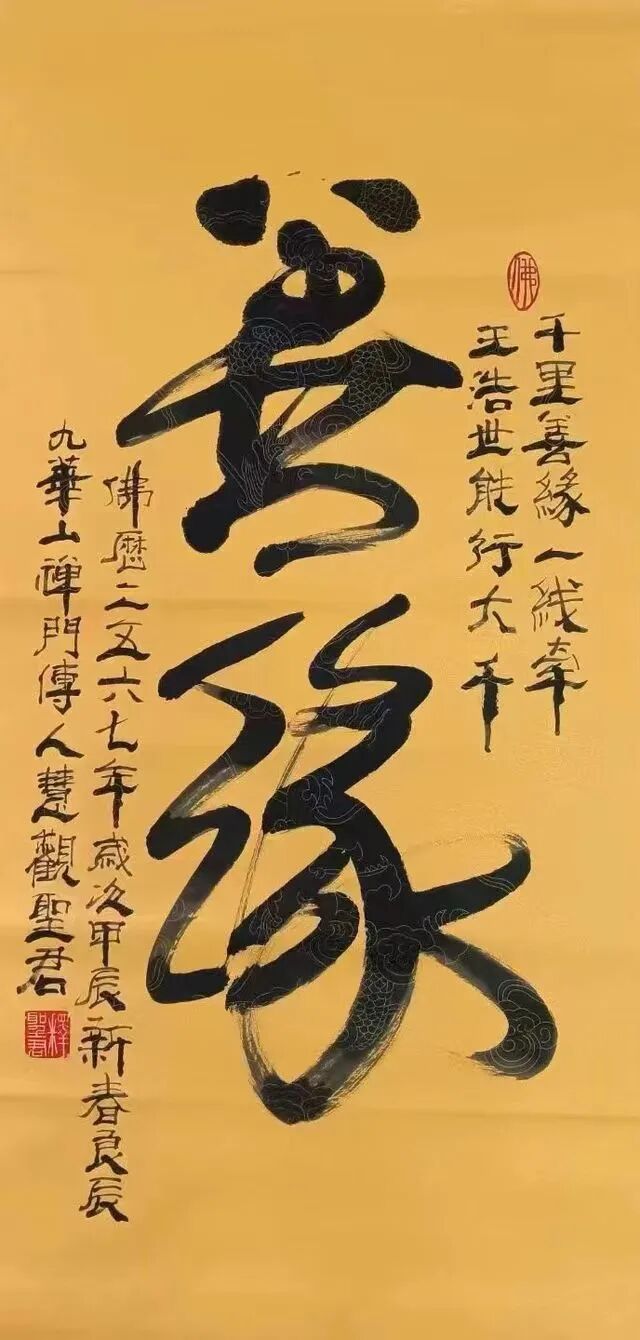 佛
千里善緣一线牵
王浩世能行大千
善缘
佛歷二五六七年歲次甲辰新春良辰
九華山禪門傳人慧觀聖君